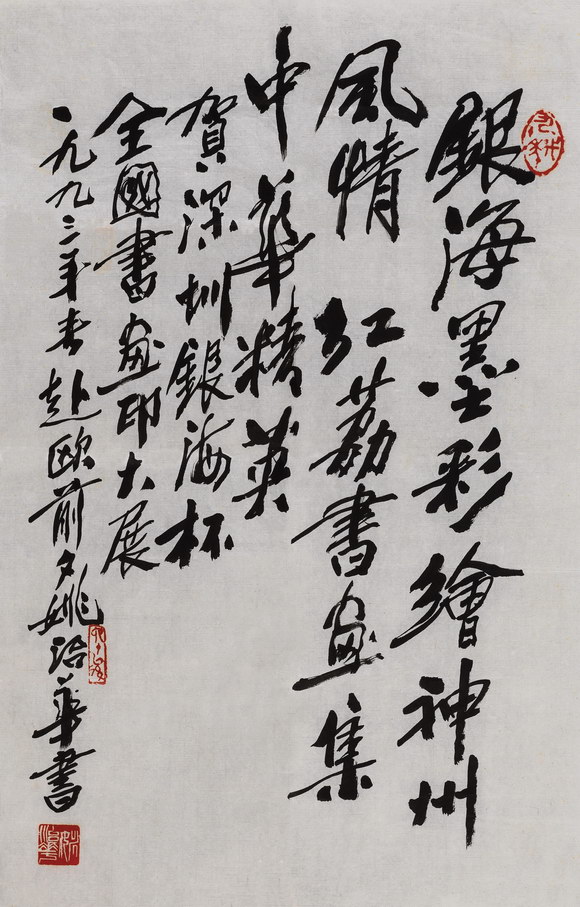 銀海墨彩繪神州
風情 紅荔書畫集
中華精英
賀深圳銀海杯
全國書畫印大展
一九九三年春赴歐前夕姚治華書